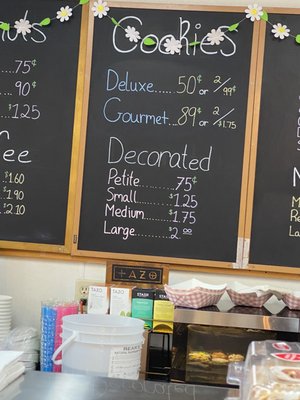 nuts
75¢
90¢
$1.25
ee
$1.60
$1.90
$2.10
Cookies
Deluxe 50¢ or 2/99¢
Gourmet...89¢ or 2/$1.75
Decorated
Petite..........75¢
Small...........$1.25
Medium.......$1.75
Large..........$2.00
TAZO
TAZO